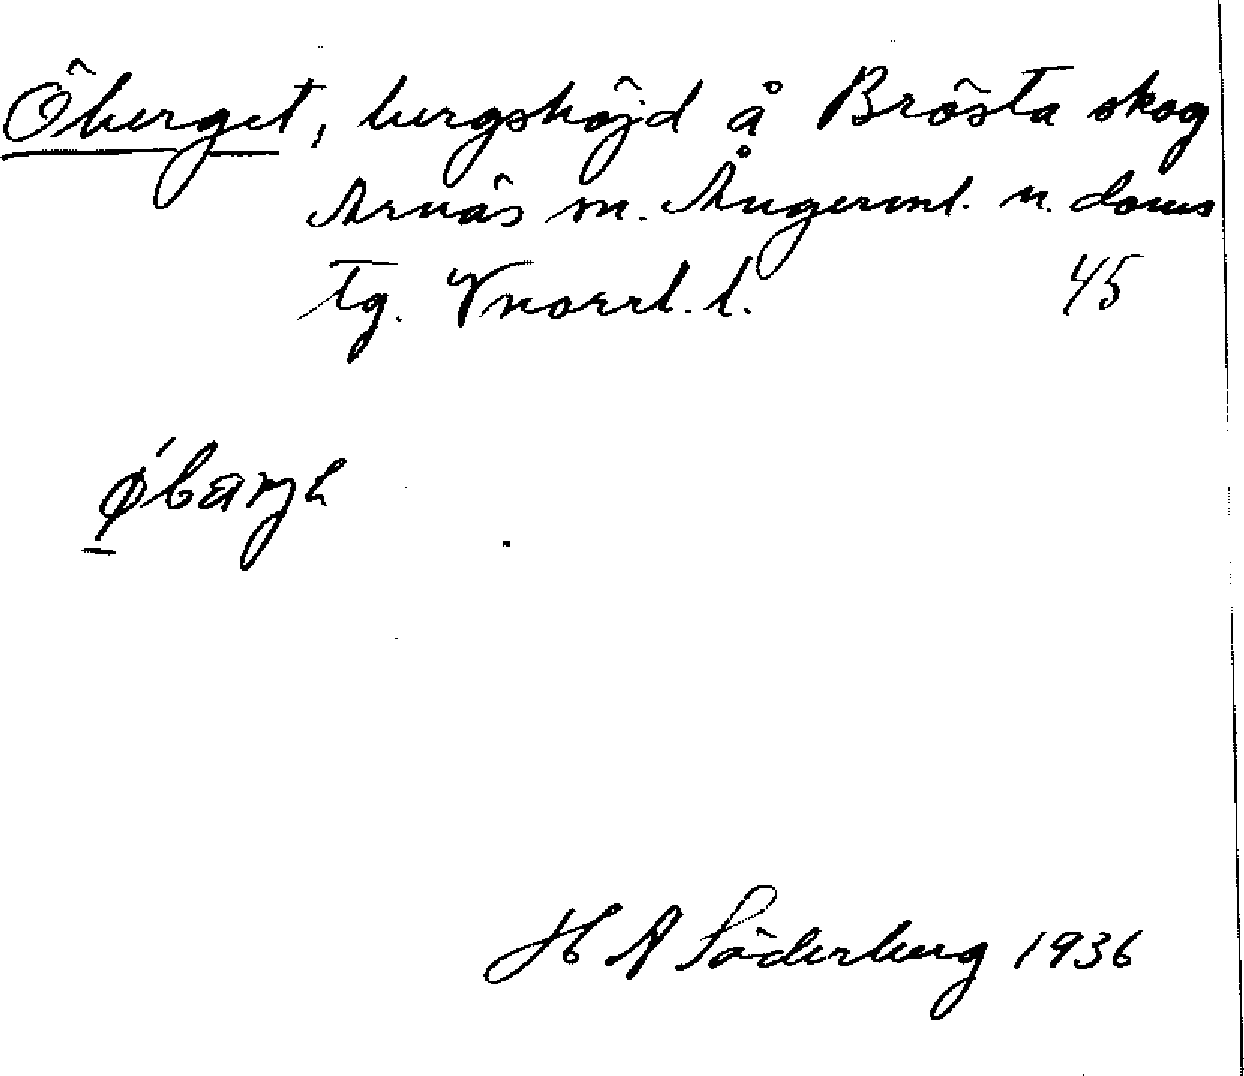 Öberget, bergshöjd å Brösta skog
Arnäs sn. Ångerml. n. doms
tg. Vnorrl. l. 45
H A Söderberg 1936